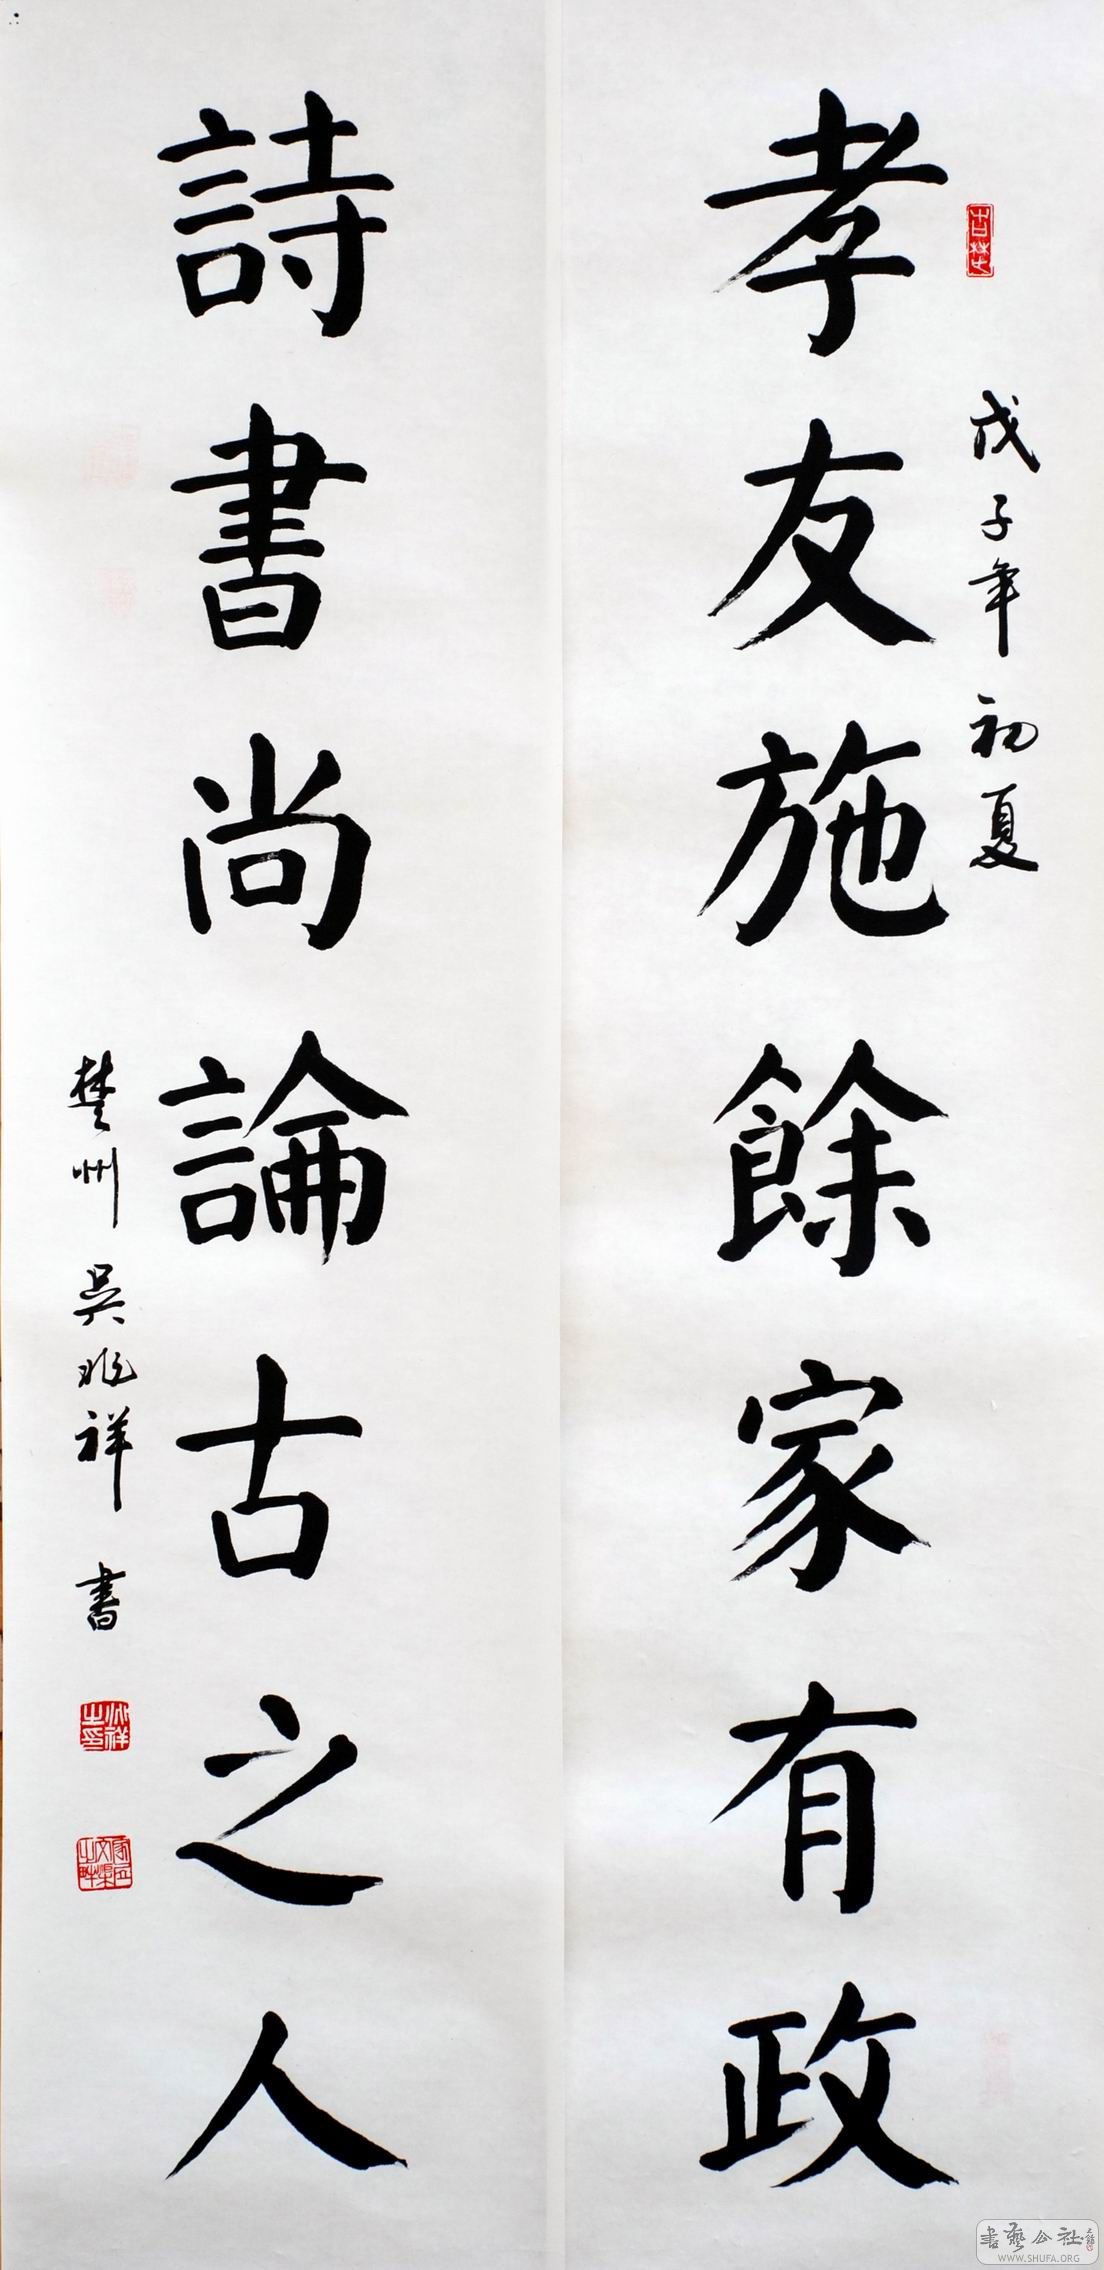 孝友施餘家有政
戊子年初夏
古楚
詩書尚論古之人
楚州吳兆祥書
兆祥之印
書藝公社
WWW.SHUFA.ORG